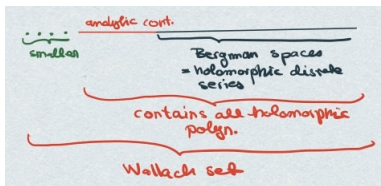 analytic cont.
smaller
Bergman spaces
= holomorphic discrete
series
contains all holomorphic
polyn.
Wallach set